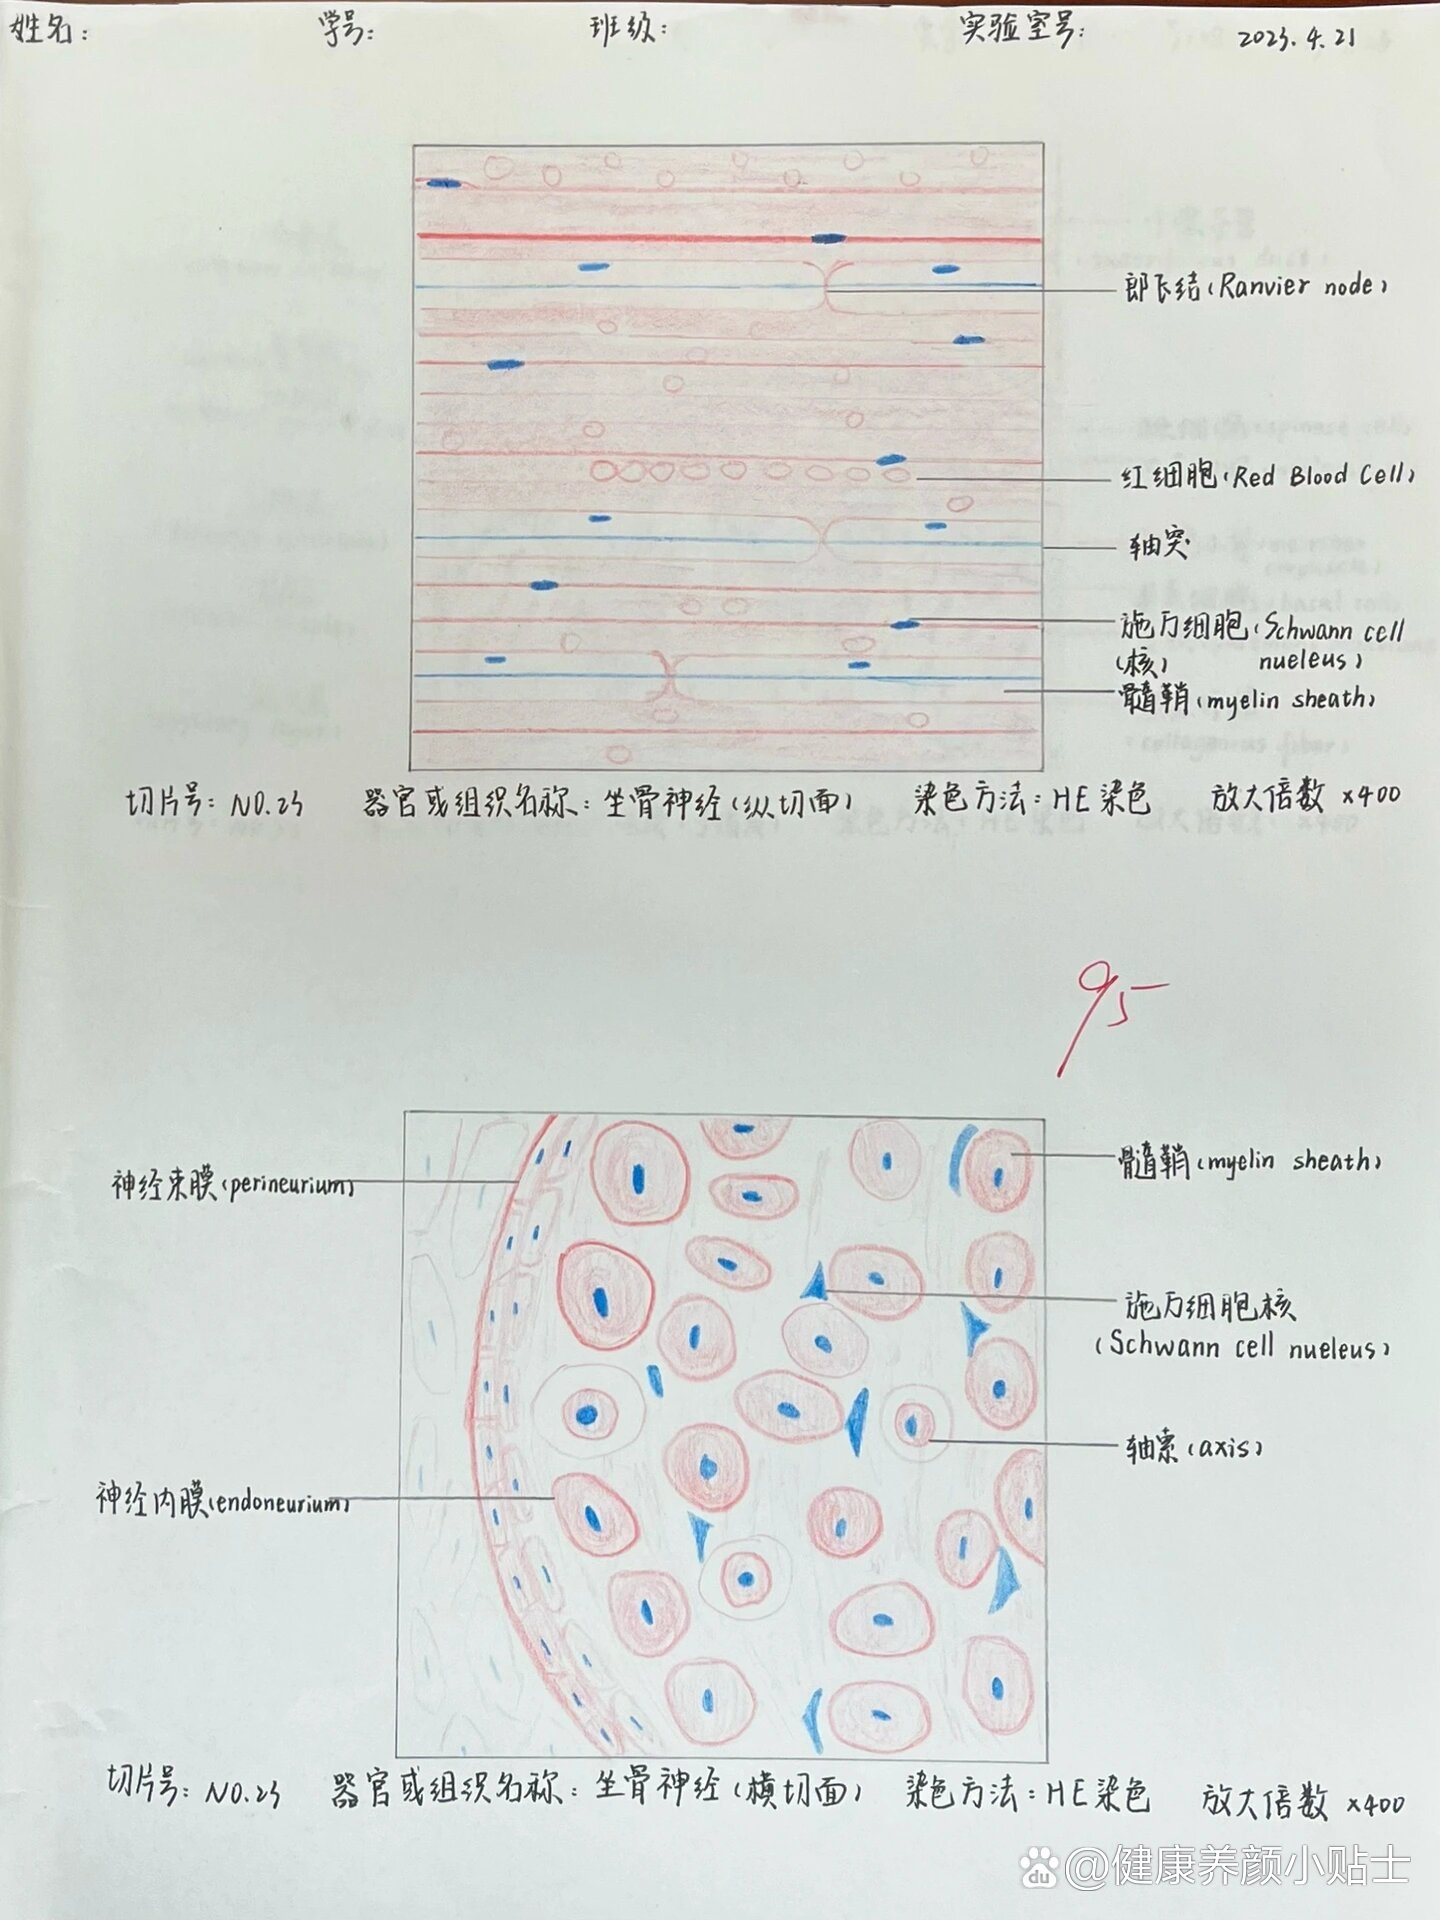 姓名: 学号: 班级: 实验室号: 2023.4.21
郎飞结(Ranvier node)
红细胞(Red Blood Cell)
轴突
施万细胞(Schwann cell
(核) nueleus)
髓鞘(myelin sheath)
切片号: NO.23 器官或组织名称: 坐骨神经(纵切面) 染色方法: HE染色 放大倍数 ×400
95
神经束膜(perineurium)
髓鞘(myelin sheath)
施万细胞核
(Schwann cell nueleus)
轴索(axis)
神经内膜(endoneurium)
切片号: NO.23 器官或组织名称: 坐骨神经(横切面) 染色方法: HE染色 放大倍数 ×400
du @健康养颜小贴士